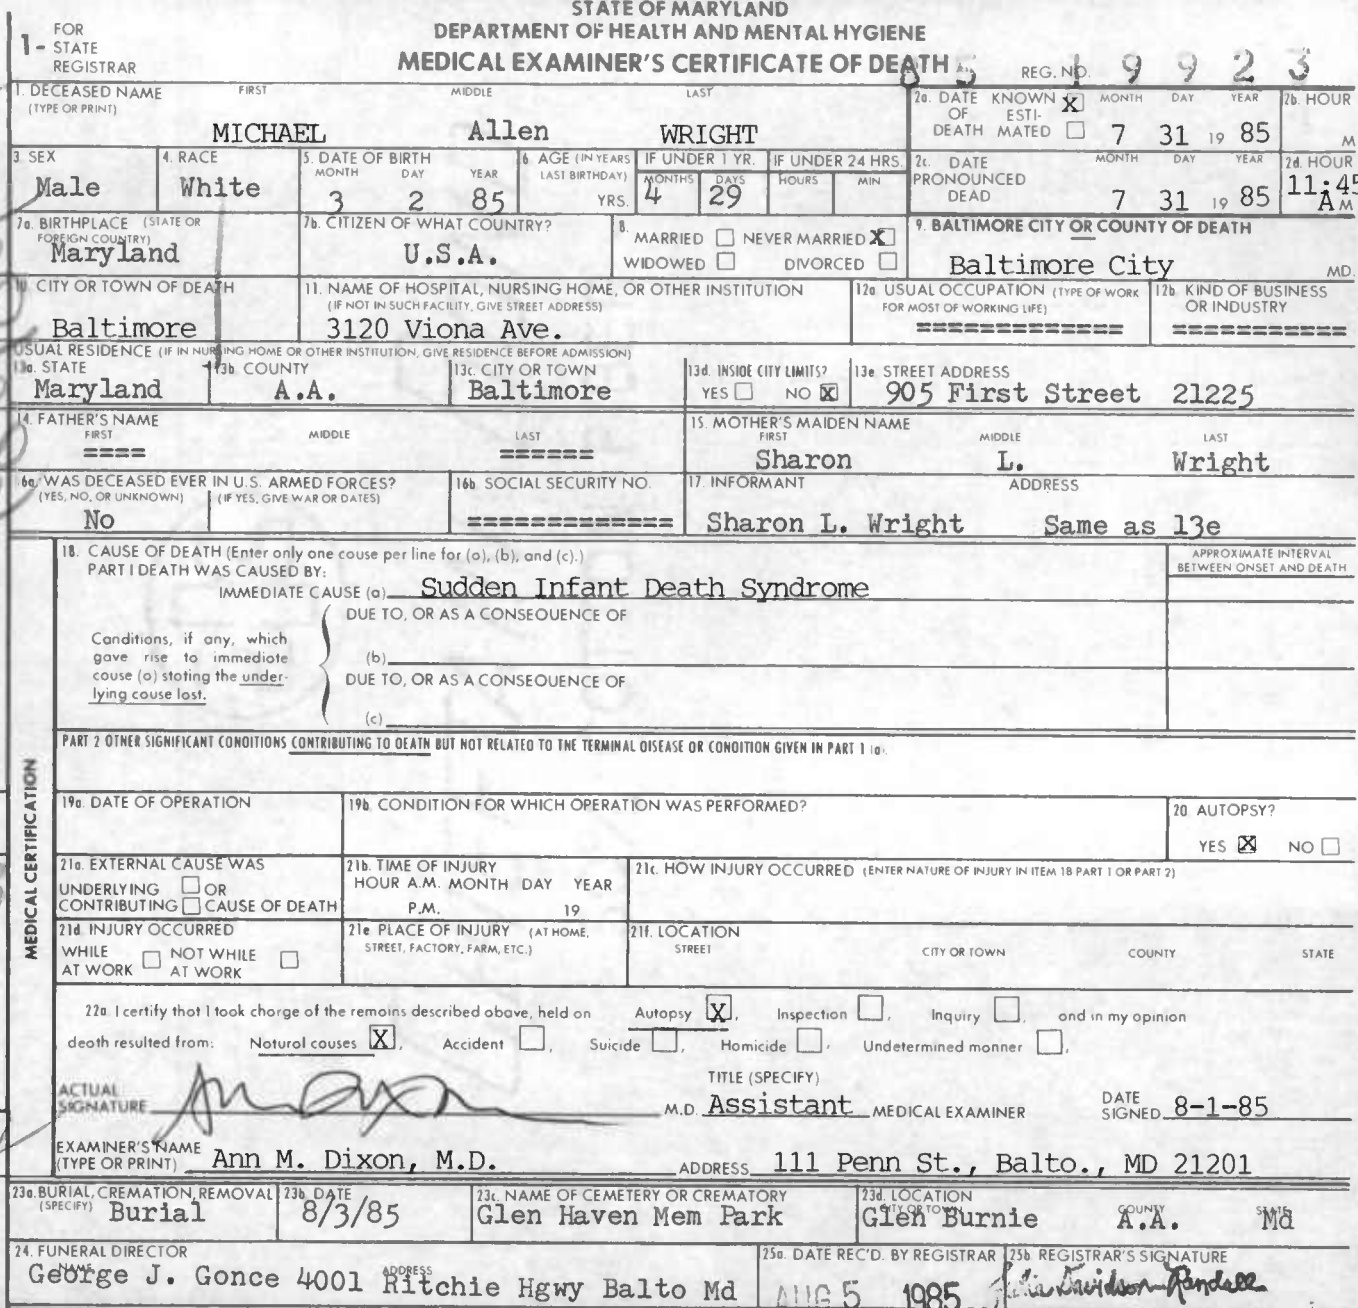 STATE OF MARYLAND
DEPARTMENT OF HEALTH AND MENTAL HYGIENE
MEDICAL EXAMINER'S CERTIFICATE OF DEATH
1- FOR STATE REGISTRAR
REG. NO. 85 19923
1. DECEASED NAME (TYPE OR PRINT) FIRST MIDDLE LAST
MICHAEL Allen WRIGHT
2a. DATE OF DEATH KNOWN X ESTIMATED MONTH DAY YEAR 7 31 19 85
2b. HOUR M
3. SEX Male
4. RACE White
5. DATE OF BIRTH MONTH DAY YEAR 3 2 85
6. AGE (IN YEARS LAST BIRTHDAY) YRS.
IF UNDER 1 YR. MONTHS 4 DAYS 29
IF UNDER 24 HRS. HOURS MIN
2c. DATE PRONOUNCED DEAD MONTH DAY YEAR 7 31 19 85
2d. HOUR 11:45 A M
7a. BIRTHPLACE (STATE OR FOREIGN COUNTRY) Maryland
7b. CITIZEN OF WHAT COUNTRY? U.S.A.
8. MARRIED NEVER MARRIED X
WIDOWED DIVORCED
9. BALTIMORE CITY OR COUNTY OF DEATH
Baltimore City MD.
10. CITY OR TOWN OF DEATH Baltimore
11. NAME OF HOSPITAL, NURSING HOME, OR OTHER INSTITUTION
(IF NOT IN SUCH FACILITY, GIVE STREET ADDRESS)
3120 Viona Ave.
12a. USUAL OCCUPATION (TYPE OF WORK FOR MOST OF WORKING LIFE) =============
12b. KIND OF BUSINESS OR INDUSTRY ===========
USUAL RESIDENCE (IF IN NURSING HOME OR OTHER INSTITUTION, GIVE RESIDENCE BEFORE ADMISSION)
13a. STATE Maryland
13b. COUNTY A.A.
13c. CITY OR TOWN Baltimore
13d. INSIDE CITY LIMITS? YES NO X
13e. STREET ADDRESS 905 First Street 21225
14. FATHER'S NAME FIRST MIDDLE LAST
==== ======
15. MOTHER'S MAIDEN NAME FIRST MIDDLE LAST
Sharon L. Wright
16a. WAS DECEASED EVER IN U.S. ARMED FORCES?
(YES, NO, OR UNKNOWN) (IF YES, GIVE WAR OR DATES)
No
16b. SOCIAL SECURITY NO. =============
17. INFORMANT ADDRESS
Sharon L. Wright Same as 13e
MEDICAL CERTIFICATION
18. CAUSE OF DEATH (Enter only one cause per line for (a), (b), and (c).)
PART I DEATH WAS CAUSED BY:
APPROXIMATE INTERVAL BETWEEN ONSET AND DEATH
IMMEDIATE CAUSE (a) Sudden Infant Death Syndrome
DUE TO, OR AS A CONSEQUENCE OF
Conditions, if any, which gave rise to immediate cause (a) stating the underlying cause last.
(b)
DUE TO, OR AS A CONSEQUENCE OF
(c)
PART 2 OTHER SIGNIFICANT CONDITIONS CONTRIBUTING TO DEATH BUT NOT RELATED TO THE TERMINAL DISEASE OR CONDITION GIVEN IN PART 1 (a).
19a. DATE OF OPERATION
19b. CONDITION FOR WHICH OPERATION WAS PERFORMED?
20. AUTOPSY?
YES X NO
21a. EXTERNAL CAUSE WAS
UNDERLYING OR
CONTRIBUTING CAUSE OF DEATH
21b. TIME OF INJURY
HOUR A.M. MONTH DAY YEAR
P.M. 19
21c. HOW INJURY OCCURRED (ENTER NATURE OF INJURY IN ITEM 18 PART 1 OR PART 2)
21d. INJURY OCCURRED
WHILE AT WORK NOT WHILE AT WORK
21e. PLACE OF INJURY (AT HOME, STREET, FACTORY, FARM, ETC.)
21f. LOCATION
STREET CITY OR TOWN COUNTY STATE
22a. I certify that I took charge of the remains described above, held on Autopsy X, Inspection, Inquiry, and in my opinion
death resulted from: Natural causes X, Accident, Suicide, Homicide, Undetermined manner,
ACTUAL SIGNATURE
TITLE (SPECIFY)
M.D. Assistant MEDICAL EXAMINER
DATE SIGNED 8-1-85
EXAMINER'S NAME (TYPE OR PRINT) Ann M. Dixon, M.D.
ADDRESS 111 Penn St., Balto., MD 21201
23a. BURIAL, CREMATION, REMOVAL (SPECIFY) Burial
23b. DATE 8/3/85
23c. NAME OF CEMETERY OR CREMATORY Glen Haven Mem Park
23d. LOCATION CITY OR TOWN COUNTY STATE
Glen Burnie A.A. Md
24. FUNERAL DIRECTOR NAME ADDRESS
George J. Gonce 4001 Ritchie Hgwy Balto Md
25a. DATE REC'D. BY REGISTRAR AUG 5 1985
25b. REGISTRAR'S SIGNATURE
Davidson-Randall